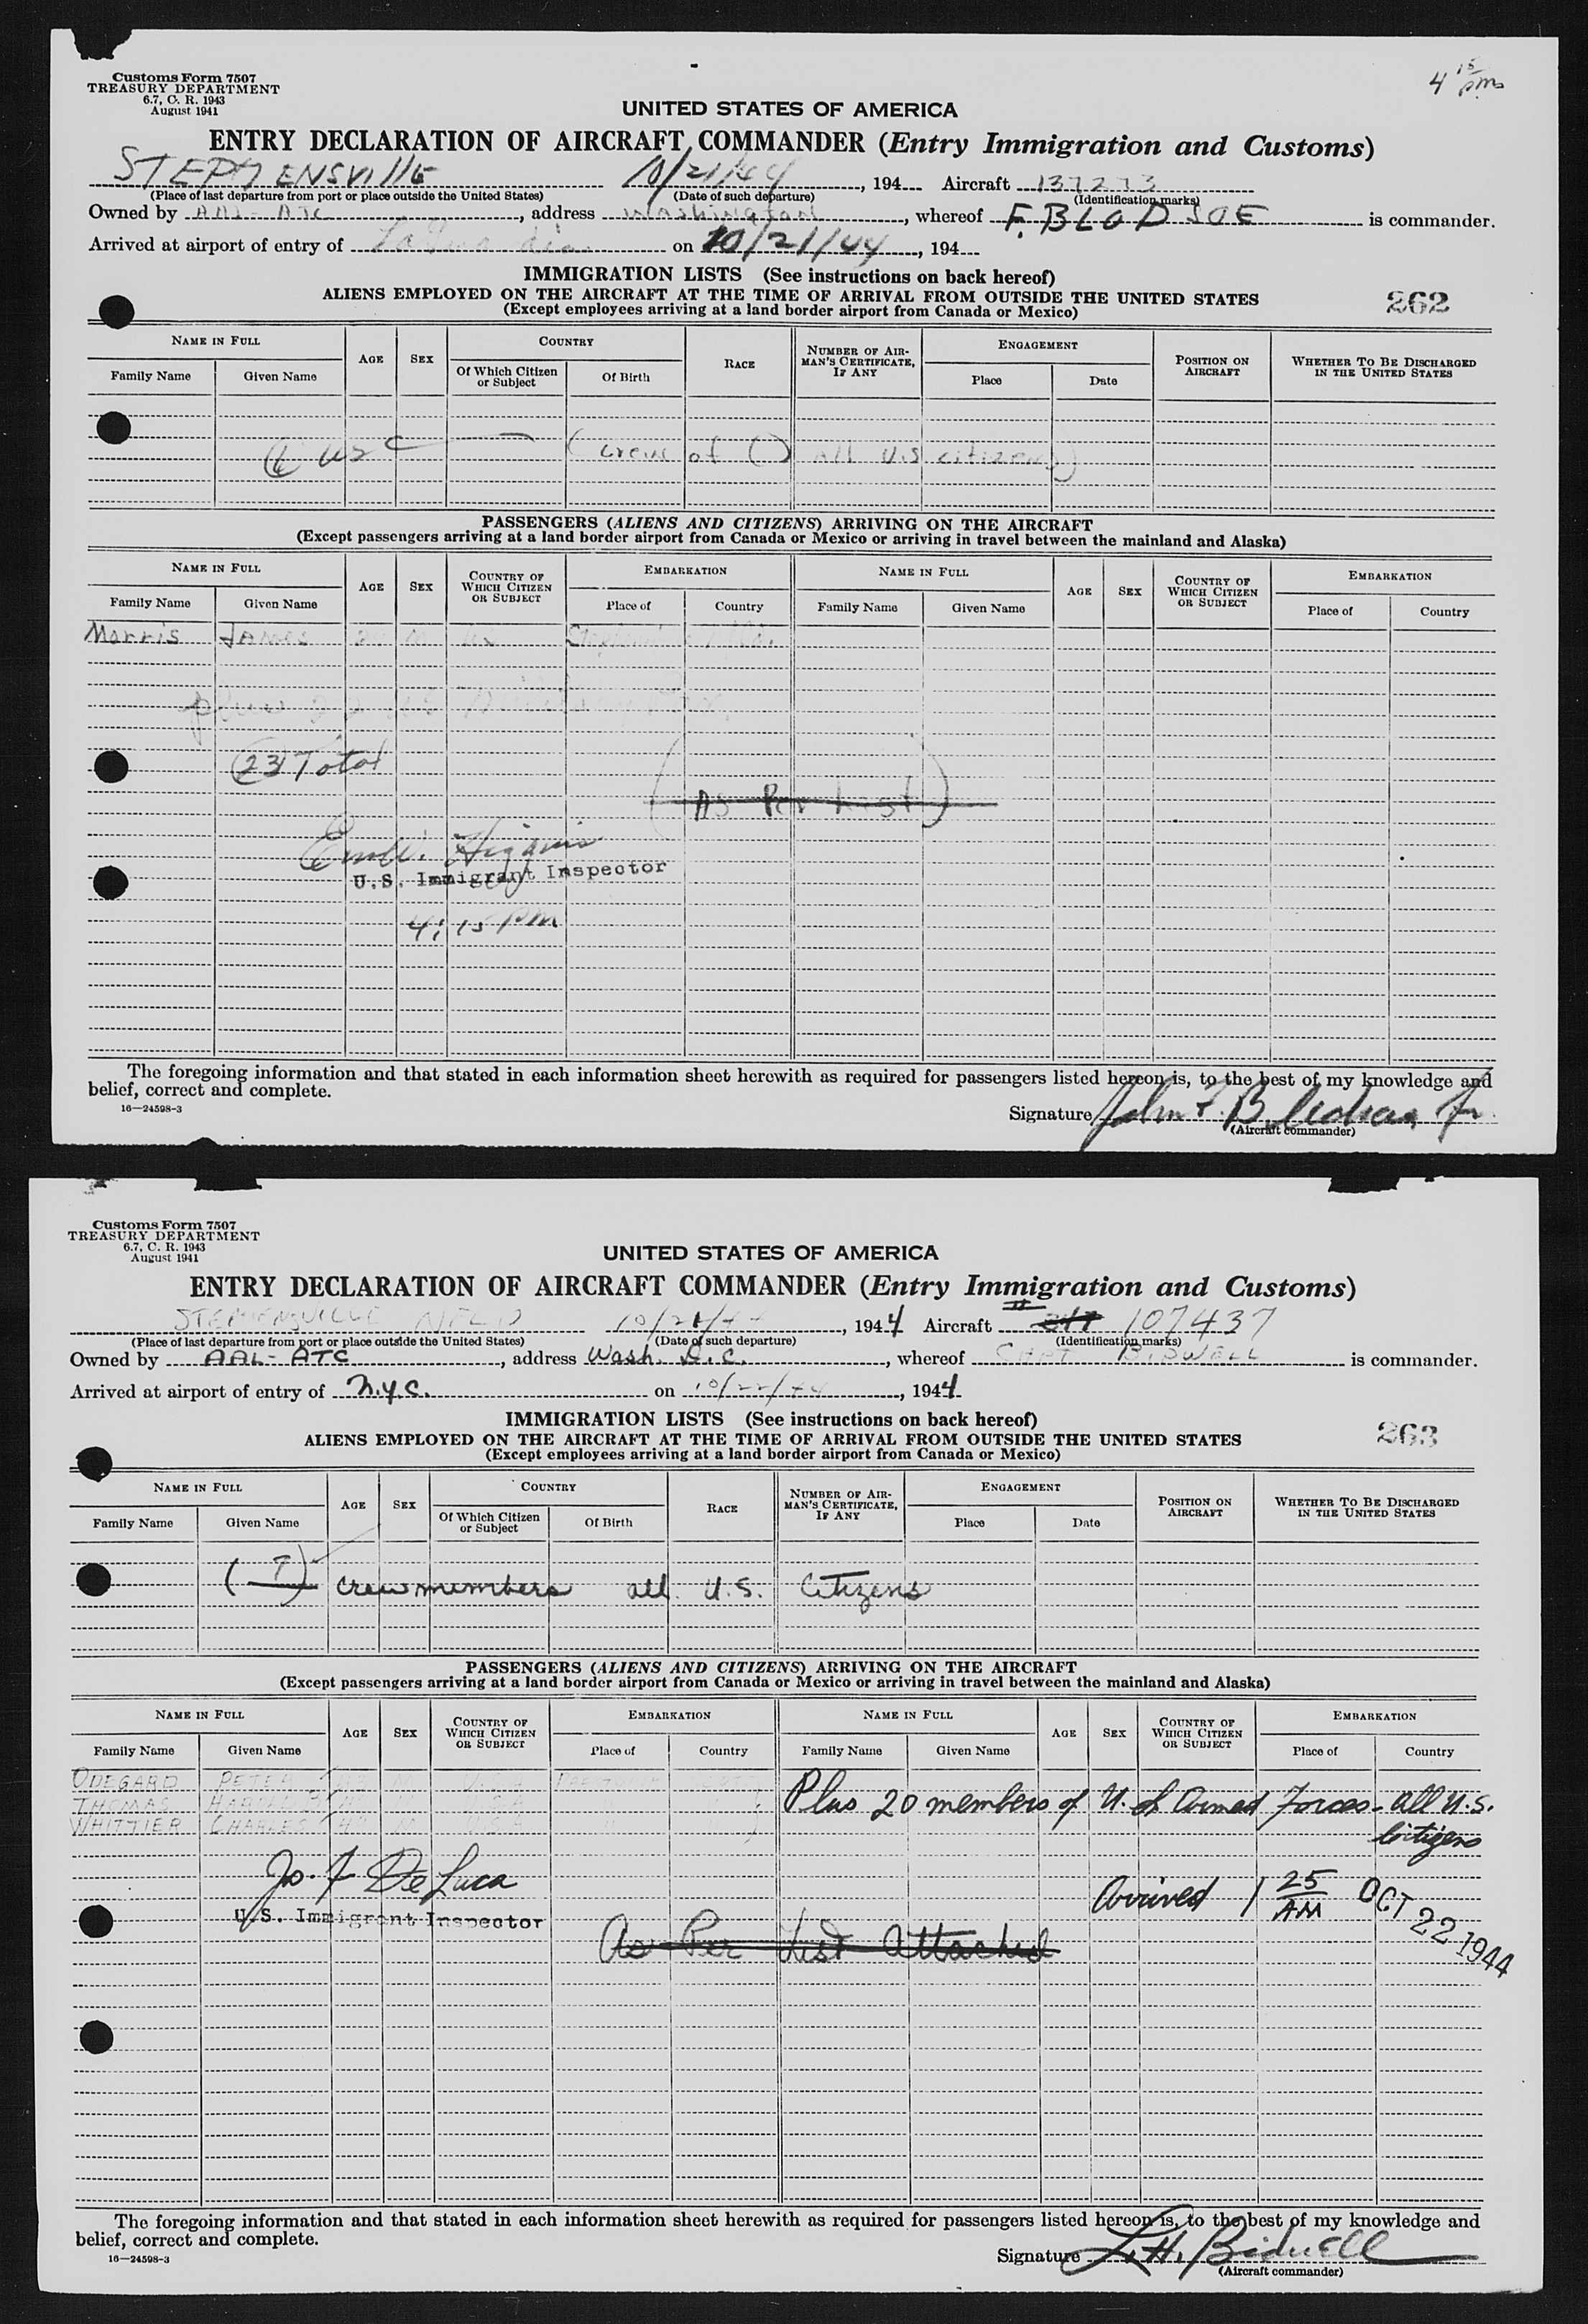 Customs Form 7507
TREASURY DEPARTMENT
6.7, C. R. 1943
August 1941
4 15 pm
UNITED STATES OF AMERICA
ENTRY DECLARATION OF AIRCRAFT COMMANDER (Entry Immigration and Customs)
STEPHENSVIllE 10/21/44, 194 Aircraft 137273
(Place of last departure from port or place outside the United States) (Date of such departure) (Identification marks)
Owned by AAL-ATC, address Washington, whereof F. BLODSOE is commander.
Arrived at airport of entry of on 10/21/44, 194
IMMIGRATION LISTS (See instructions on back hereof)
ALIENS EMPLOYED ON THE AIRCRAFT AT THE TIME OF ARRIVAL FROM OUTSIDE THE UNITED STATES
(Except employees arriving at a land border airport from Canada or Mexico)
262
NAME IN FULL AGE SEX COUNTRY RACE NUMBER OF AIRMAN'S CERTIFICATE, IF ANY ENGAGEMENT POSITION ON AIRCRAFT WHETHER TO BE DISCHARGED IN THE UNITED STATES
Family Name Given Name Of Which Citizen or Subject Of Birth Place Date
(crew of ( ) all U.S citizens)
PASSENGERS (ALIENS AND CITIZENS) ARRIVING ON THE AIRCRAFT
(Except passengers arriving at a land border airport from Canada or Mexico or arriving in travel between the mainland and Alaska)
NAME IN FULL AGE SEX COUNTRY OF WHICH CITIZEN OR SUBJECT EMBARKATION NAME IN FULL AGE SEX COUNTRY OF WHICH CITIZEN OR SUBJECT EMBARKATION
Family Name Given Name Place of Country Family Name Given Name Place of Country
Morris James M
plus 22 US Military
(23) Total
(As Per List)
Higgins
U.S. Immigrant Inspector
4:15 PM
The foregoing information and that stated in each information sheet herewith as required for passengers listed hereon is, to the best of my knowledge and
belief, correct and complete.
16—24598-3
Signature John F. Jr.
(Aircraft commander)
Customs Form 7507
TREASURY DEPARTMENT
6.7, C. R. 1943
August 1941
UNITED STATES OF AMERICA
ENTRY DECLARATION OF AIRCRAFT COMMANDER (Entry Immigration and Customs)
STEPHENSVILLE NFLD 10/21/44, 1944 Aircraft 107437
(Place of last departure from port or place outside the United States) (Date of such departure) (Identification marks)
Owned by AAL-ATC, address Wash. D.C., whereof CAPT BIDWELL is commander.
Arrived at airport of entry of N.Y.C. on 10/22/44, 1944
IMMIGRATION LISTS (See instructions on back hereof)
ALIENS EMPLOYED ON THE AIRCRAFT AT THE TIME OF ARRIVAL FROM OUTSIDE THE UNITED STATES
(Except employees arriving at a land border airport from Canada or Mexico)
263
NAME IN FULL AGE SEX COUNTRY RACE NUMBER OF AIRMAN'S CERTIFICATE, IF ANY ENGAGEMENT POSITION ON AIRCRAFT WHETHER TO BE DISCHARGED IN THE UNITED STATES
Family Name Given Name Of Which Citizen or Subject Of Birth Place Date
(7) crewmembers all U.S. Citizens
PASSENGERS (ALIENS AND CITIZENS) ARRIVING ON THE AIRCRAFT
(Except passengers arriving at a land border airport from Canada or Mexico or arriving in travel between the mainland and Alaska)
NAME IN FULL AGE SEX COUNTRY OF WHICH CITIZEN OR SUBJECT EMBARKATION NAME IN FULL AGE SEX COUNTRY OF WHICH CITIZEN OR SUBJECT EMBARKATION
Family Name Given Name Place of Country Family Name Given Name Place of Country
ODEGARD PETER M U.S.A
THOMAS HAROLD B M U.S.A
WHITTIER CHARLES M U.S.A
Plus 20 members of U.S. Armed Forces - all U.S.
Citizens
Jo. F De Luca
U.S. Immigrant Inspector
Arrived 1 25 AM OCT 22 1944
As Per List Attached
The foregoing information and that stated in each information sheet herewith as required for passengers listed hereon is, to the best of my knowledge and
belief, correct and complete.
16—24598-3
Signature L.H. Bidwell
(Aircraft commander)